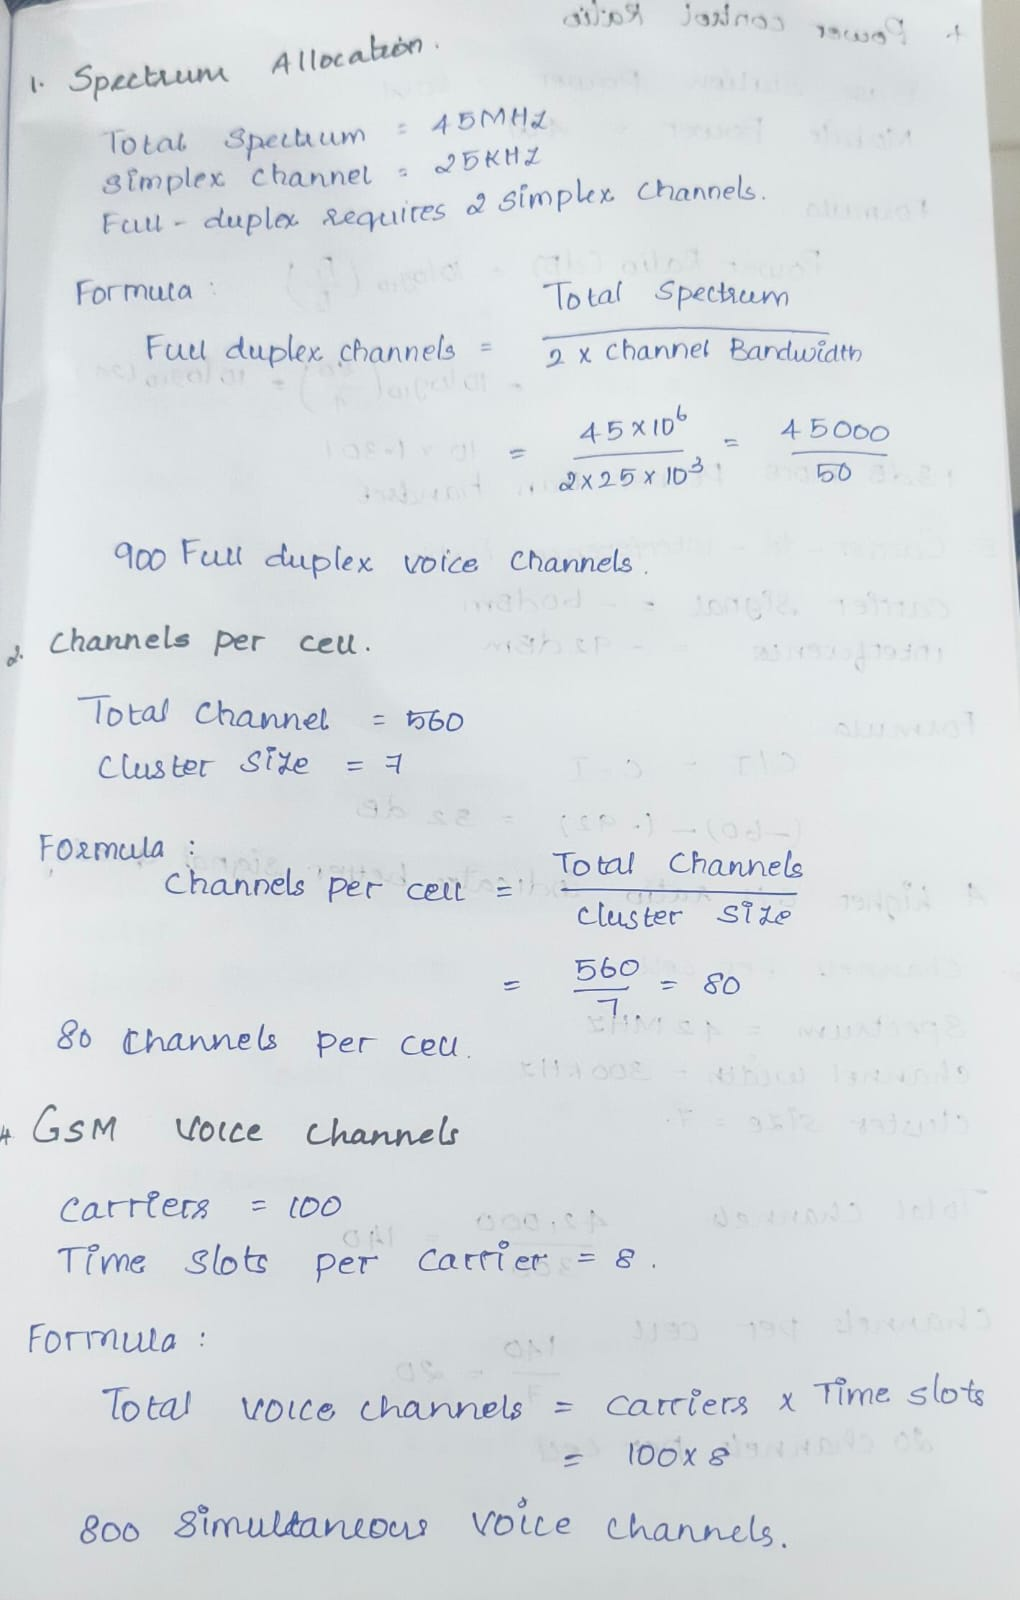 1. Spectrum Allocation.
Total Spectrum = 45MHZ
Simplex channel = 25KHZ
Full - duplex requires 2 simplex channels.
Formula :
Full duplex channels = Total Spectrum / 2 x Channel Bandwidth
= 45 x 10⁶ / 2 x 25 x 10³ = 45000 / 50
900 Full duplex voice channels.
2. Channels per cell.
Total Channel = 560
Cluster Size = 7
Formula :
Channels per cell = Total Channels / Cluster Size
= 560 / 7 = 80
80 Channels per cell.
4 GSM Voice Channels
Carriers = 100
Time Slots per Carrier = 8.
Formula :
Total voice channels = Carriers x Time slots
= 100 x 8
800 Simultaneous voice channels.